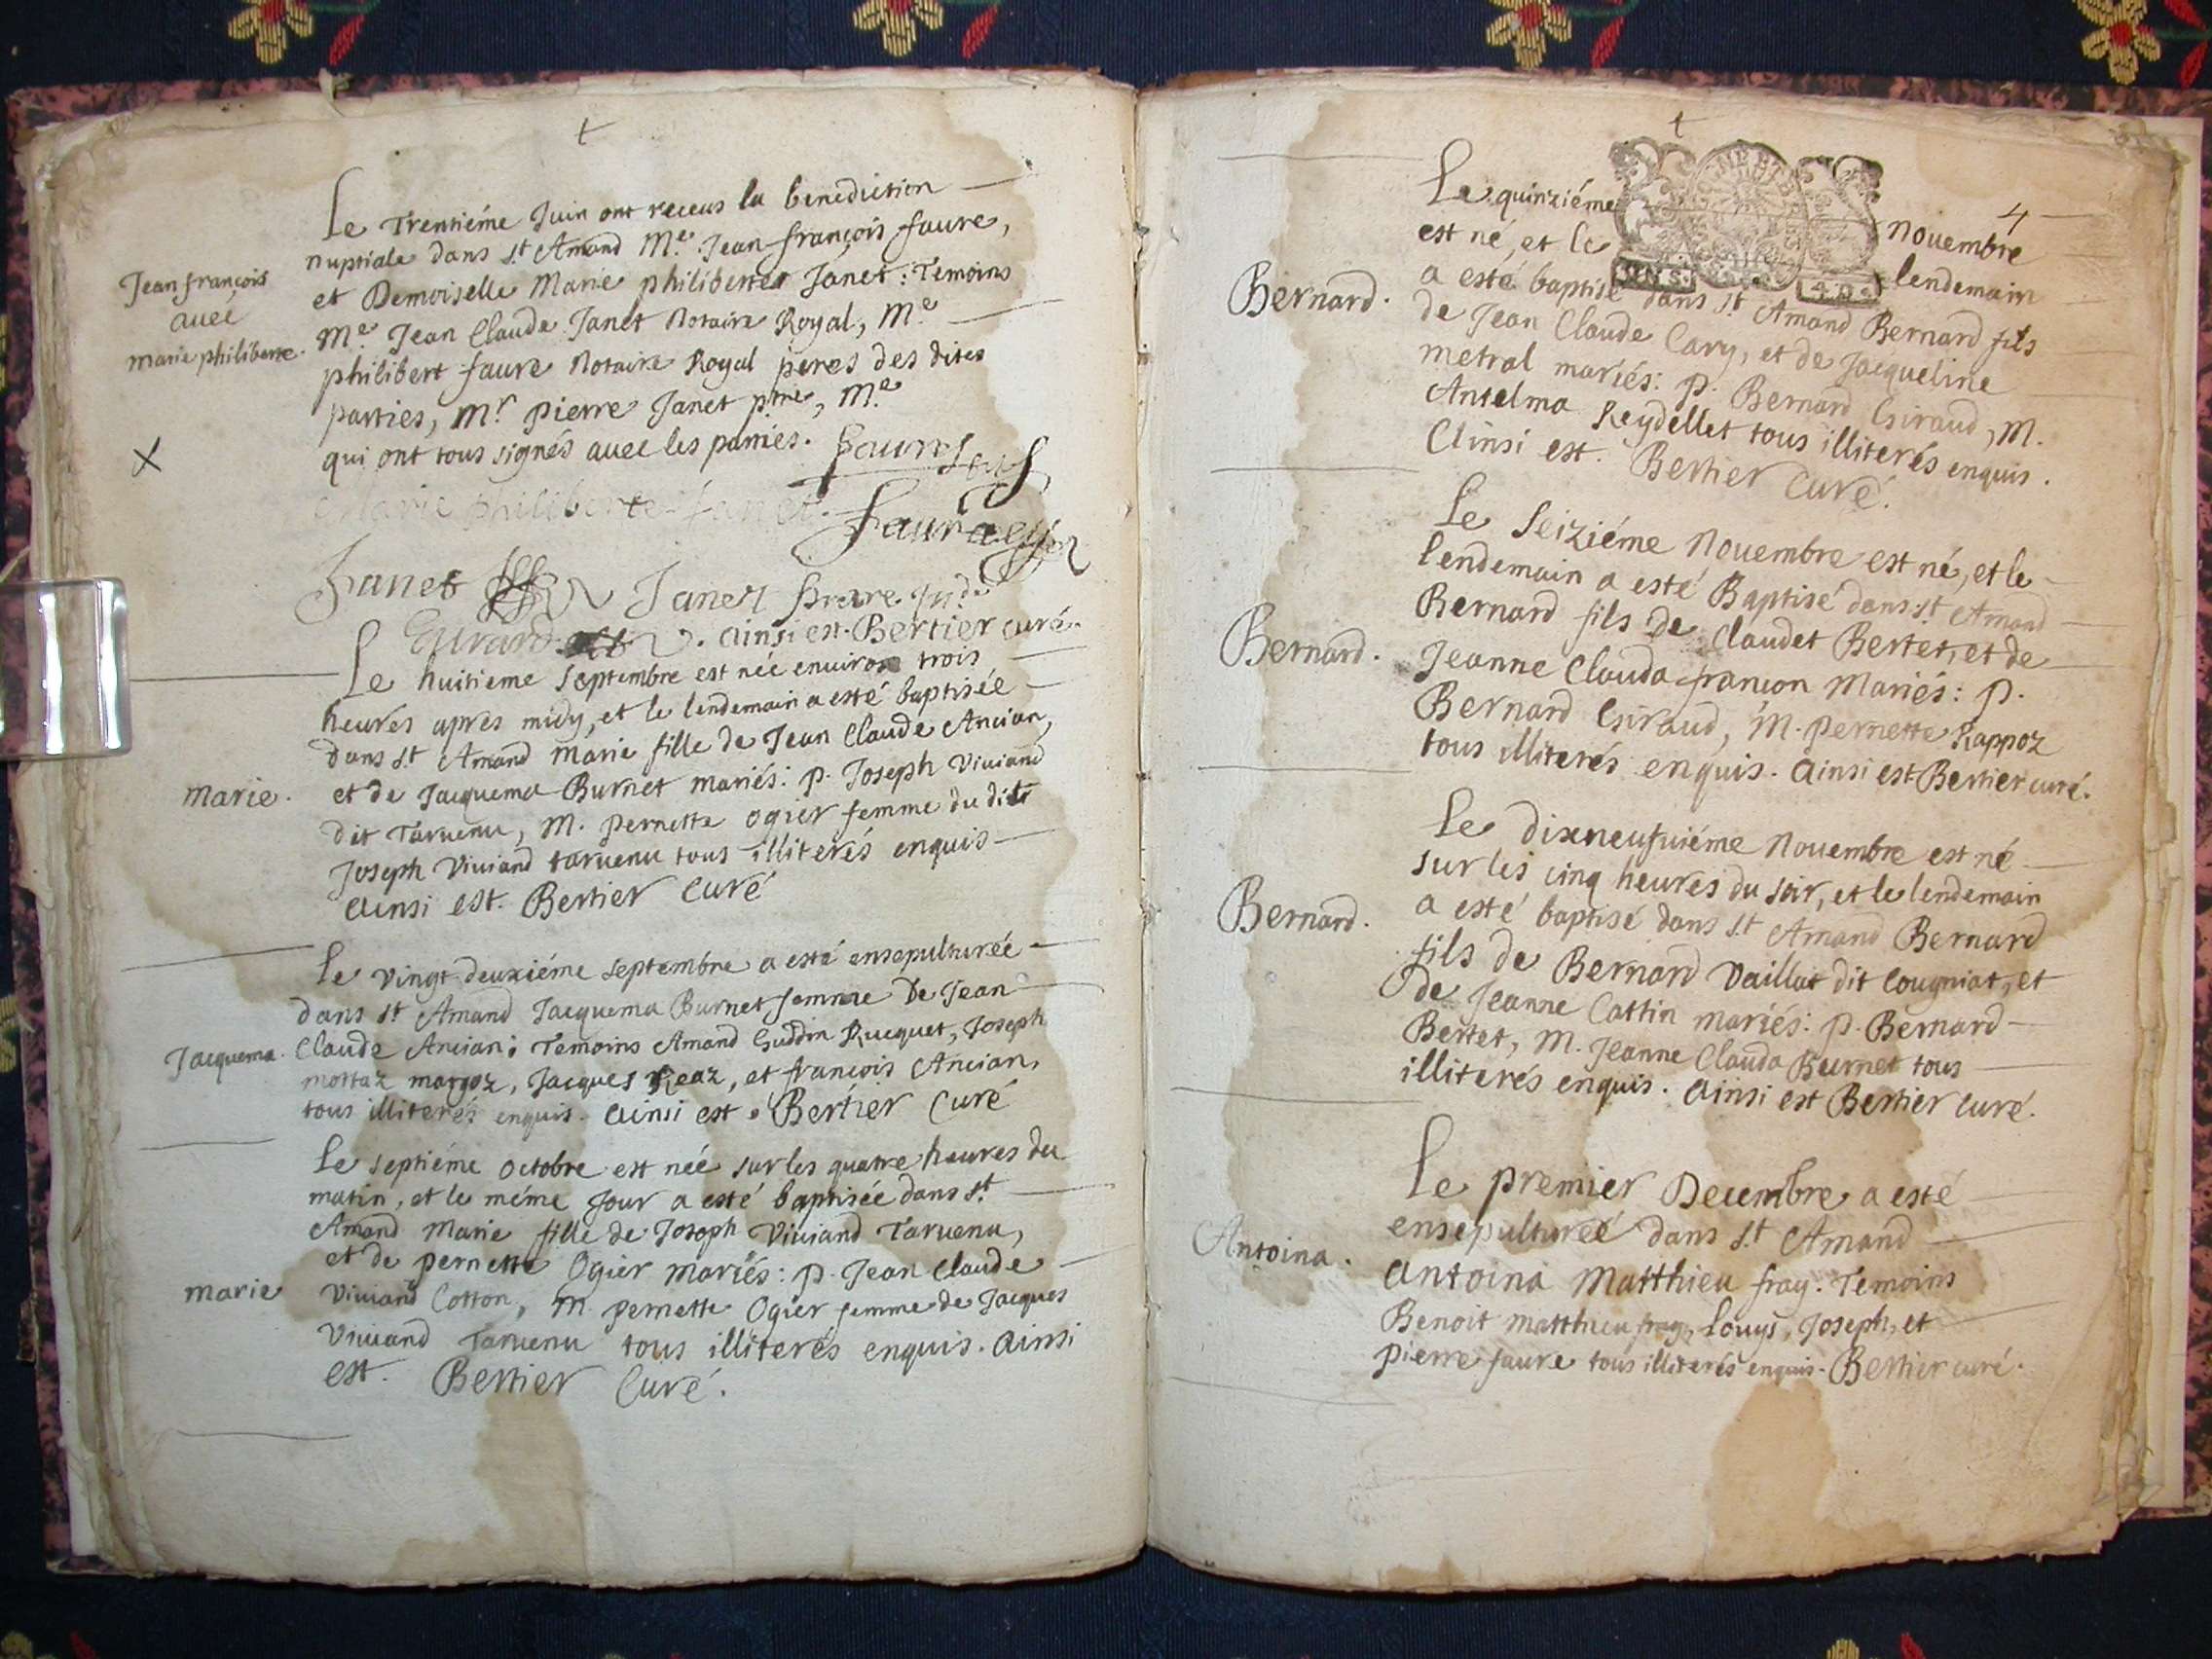 Jean françois
avec
marie philiberte.
Le Trentiéme Juin ont receus la benediction
nuptiale dans S.t Amand M.e Jean françois faure,
et Demoiselle Marie philiberte Janet: Temoins
M.e Jean Claude Janet Notaire Royal, M.e
philibert faure Notaire Royal peres des dites
parties, M.r pierre Janet p.tre, M.e
qui ont tous signés avec les parties.
Marie philiberte Janet
Janet Janet
ainsi est. Bertier curé.
marie.
Le huitieme Septembre est née environ trois
heures apres midy, et le lendemain a esté baptisée
dans S.t Amand Marie fille de Jean Claude Ancian,
et de Jacquema Burnet mariés: p. Joseph Viviand
dit Tarvenu, M. pernette ogier femme du dit
Joseph Viviand tarvenu tous illiterés enquis
ainsi est. Bertier Curé
Jacquema.
Le vingt-deuxiéme Septembre a esté ensepulturée
dans S.t Amand Jacquema Burnet femme De Jean
Claude Ancian; Temoins Amand Guddin Rucquet, Joseph
mottaz margoz, Jacques Reaz, et françois Ancian,
tous illiterés enquis. ainsi est. Bertier Curé
marie
Le septiéme octobre est née sur les quatre heures du
matin, et le méme Jour a esté baptisée dans S.t
Amand Marie fille de Joseph Viviand Tarvenu,
et de pernette Ogier mariés: p. Jean Claude
Viviand Cotton, M. pernette Ogier femme de Jacques
Viviand Tarvenu tous illiterés enquis. ainsi
est. Bertier Curé.
4
Bernard.
Le quinziéme Novembre
est né, et le lendemain
a esté baptisé dans S.t Amand Bernard fils
de Jean Claude Cary, et de Jacqueline
metral mariés: p. Bernard Giraud, M.
Antelma Reydellet tous illiterés enquis.
Ainsi est. Bertier Curé.
Bernard.
Le Seiziéme Novembre est né, et le
lendemain a esté Baptisé dans S.t Amand
Bernard fils de Claudet Bertet, et de
Jeanne Clauda françon Mariés: p.
Bernard Giraud, M. pernette Rappoz
tous illiterés enquis. Ainsi est Bertier curé.
Bernard.
Le dixneufviéme Novembre est né
sur les cinq heures du soir, et le lendemain
a esté baptisé dans S.t Amand Bernard
fils de Bernard Vaillat dit Cougniat, et
de Jeanne Cattin mariés: p. Bernard
Bertet, M. Jeanne Clauda Burnet tous
illiterés enquis. Ainsi est Bertier curé.
Antoina.
Le premier Decembre a esté
ensepulturée dans S.t Amand
antoina Matthieu fray. Temoins
Benoit matthieu fray, Louys, Joseph, et
pierre faure tous illiterés enquis. Bertier curé.